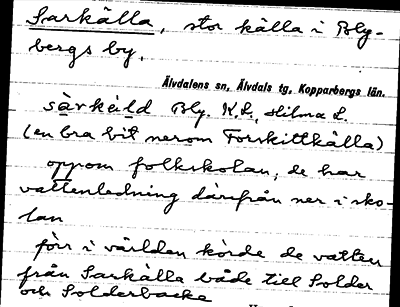 Sarkälla, stor källa i Bly-
bergs by.
Älvdalens sn, Älvdals tg, Kopparbergs län.
särkäld Bly. K.L., Hilma L.
(en bra bit nerom Forskittkälla)
oppom folkskolan; de har
vattenledning därifrån ner i sko-
lan
förr i världen körde de vatten
från Sarkälla både till Solder
och Solderbacke